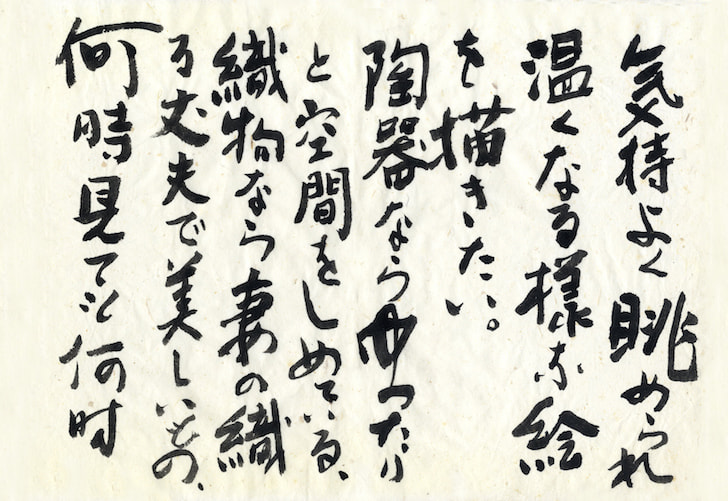 気持よく眺められ
温くなる様な絵
を描きたい。
陶器ならゆったり
と空間をしめている、
織物なら妻の織
る丈夫で美しいもの、
何時見ても何時